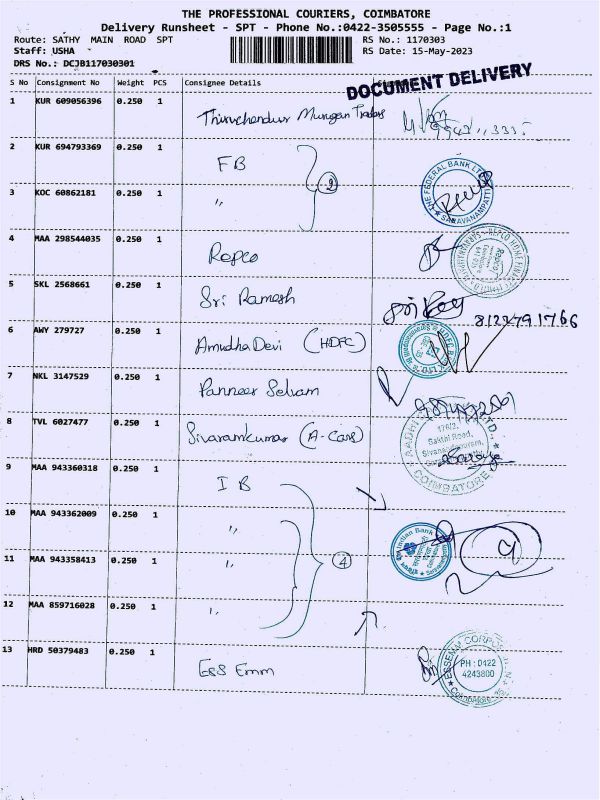 THE PROFESSIONAL COURIERS, COIMBATORE
Delivery Runsheet - SPT - Phone No.:0422-3505555 - Page No.:1
Route: SATHY MAIN ROAD SPT RS No.: 1170303
Staff: USHA RS Date: 15-May-2023
DRS No.: DCJB117030301
DOCUMENT DELIVERY
S No Consignment No Weight PCS Consignee Details
1 KUR 609056396 0.250 1 Thiruchendur Murugan Traders
2 KUR 694793369 0.250 1 FB
THE FEDERAL BANK LTD SARAVANAMPATTI
3 KOC 60862181 0.250 1 "
4 MAA 298544035 0.250 1 Repco
5 SKL 2568661 0.250 1 Sri Ramesh
8122791766
6 AWY 279727 0.250 1 Amudha Devi (HDFC)
7 NKL 3147529 0.250 1 Panneer Selvam
8 TVL 6027477 0.250 1 Sivaramkumar (A-Cars)
176/2, Sakthi Road, Sivanandapuram, COIMBATORE
9 MAA 943360318 0.250 1 I B
10 MAA 943362009 0.250 1 "
Indian Bank
11 MAA 943358413 0.250 1 " 4
12 MAA 859716028 0.250 1 "
13 HRD 50379483 0.250 1 Ess Emm
PH : 0422 4243800